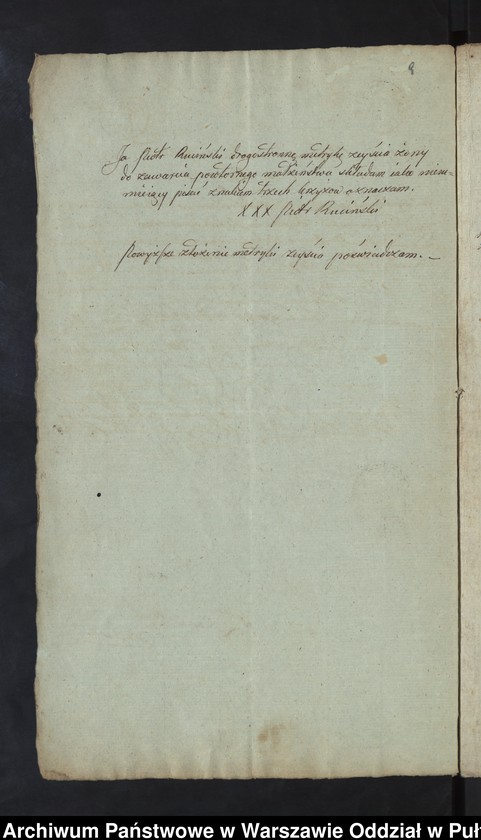 8
Ja Piotr Ruciński drogostronną metrykę zejścia żony
do zawarcia powtórnego małżeństwa składam iako nieu-
mieiący pisać znakiem trzech krzyżów oznaczam.
XXX Piotr Ruciński
Powyższe złożenie metryki zejścia poświadczam. —
Archiwum Państwowe w Warszawie Oddział w Puł